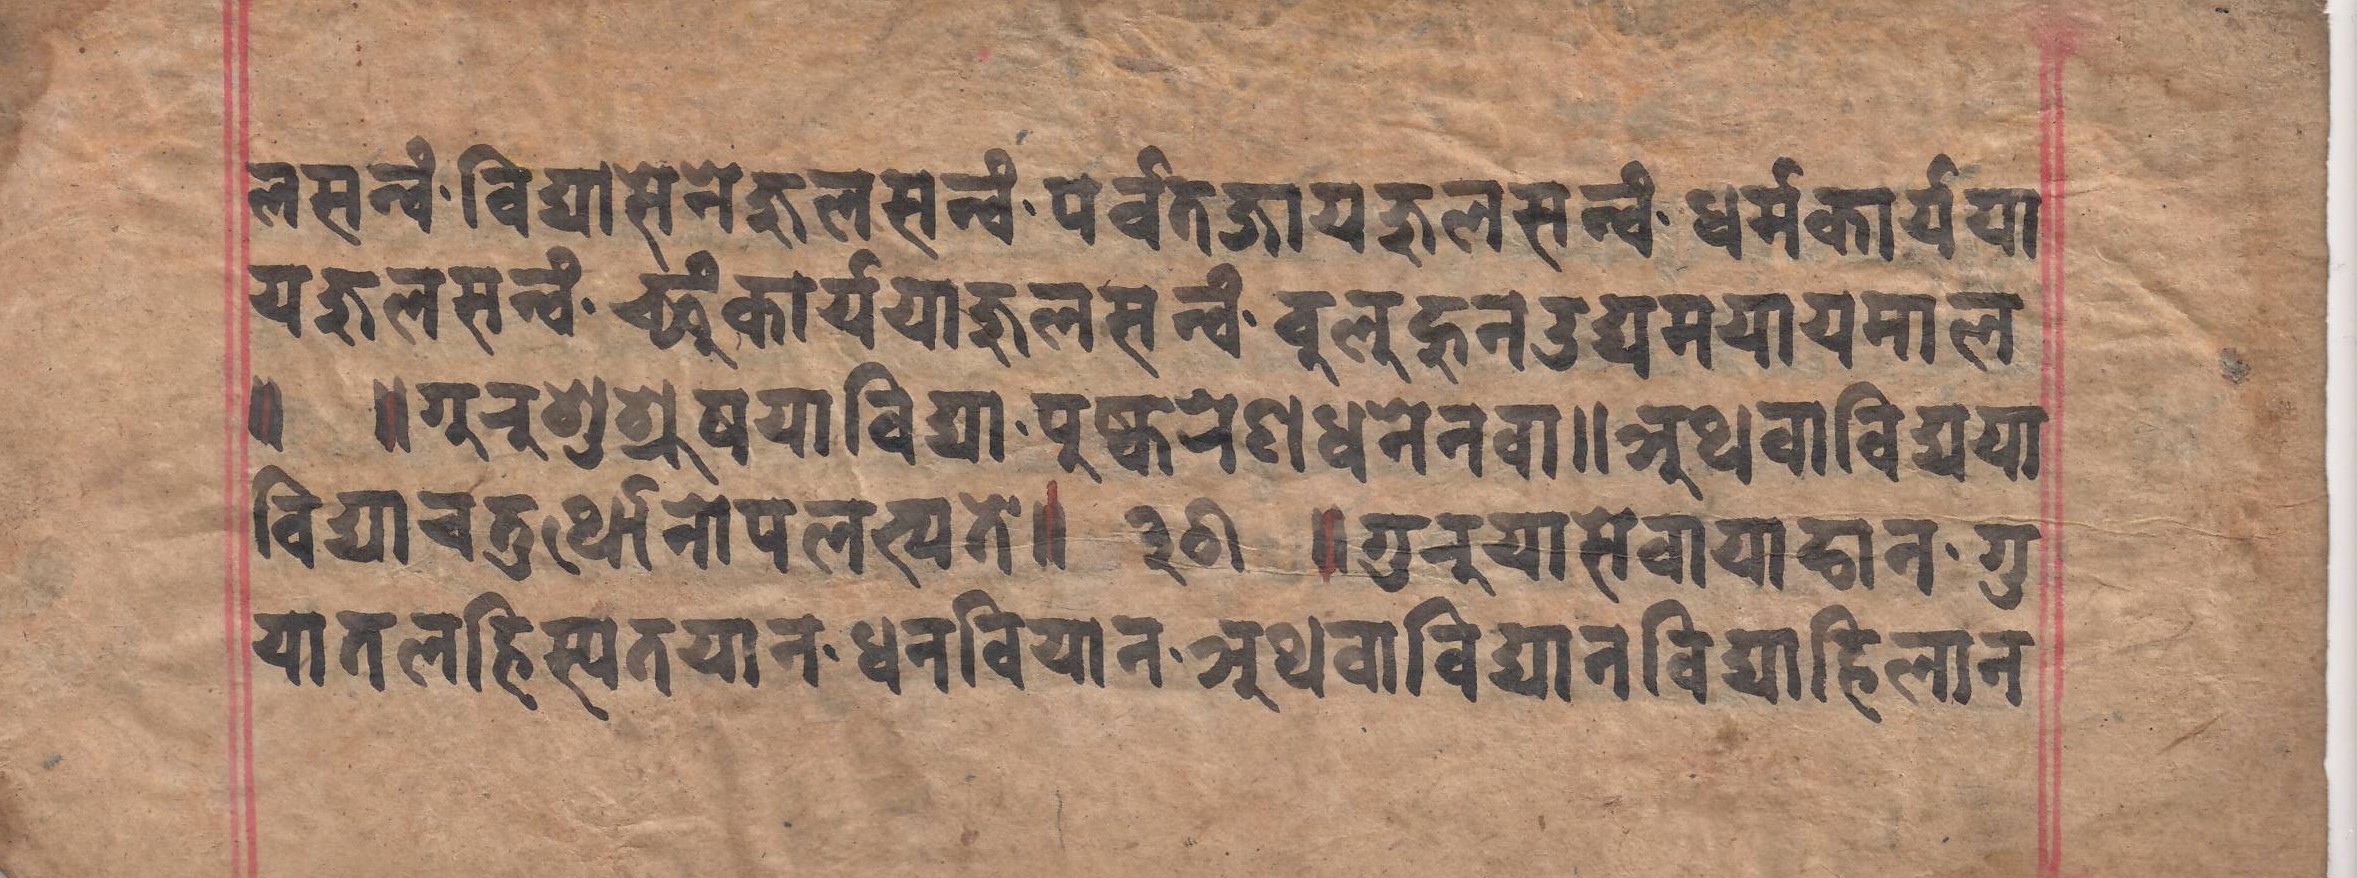 लसन्वं· विद्यासेनेरुलसन्वं· पर्वतजायरुलसन्वं· धर्मकार्यया
यरुलसन्वं· कार्ययारुलसन्वं· वुलुहुनउद्यमयायमाल
॥ ॥ गूनुशुश्रूषयाविद्या· पुष्करेणधनेनवा॥ अथवाविद्यया
विद्याचतुर्थोनोपलभ्यते॥ ३० ॥ गुनुयासेवायाङान· गु
यातलहिस्यतयान· धनवियान· अथवाविद्यानविद्याहिलान